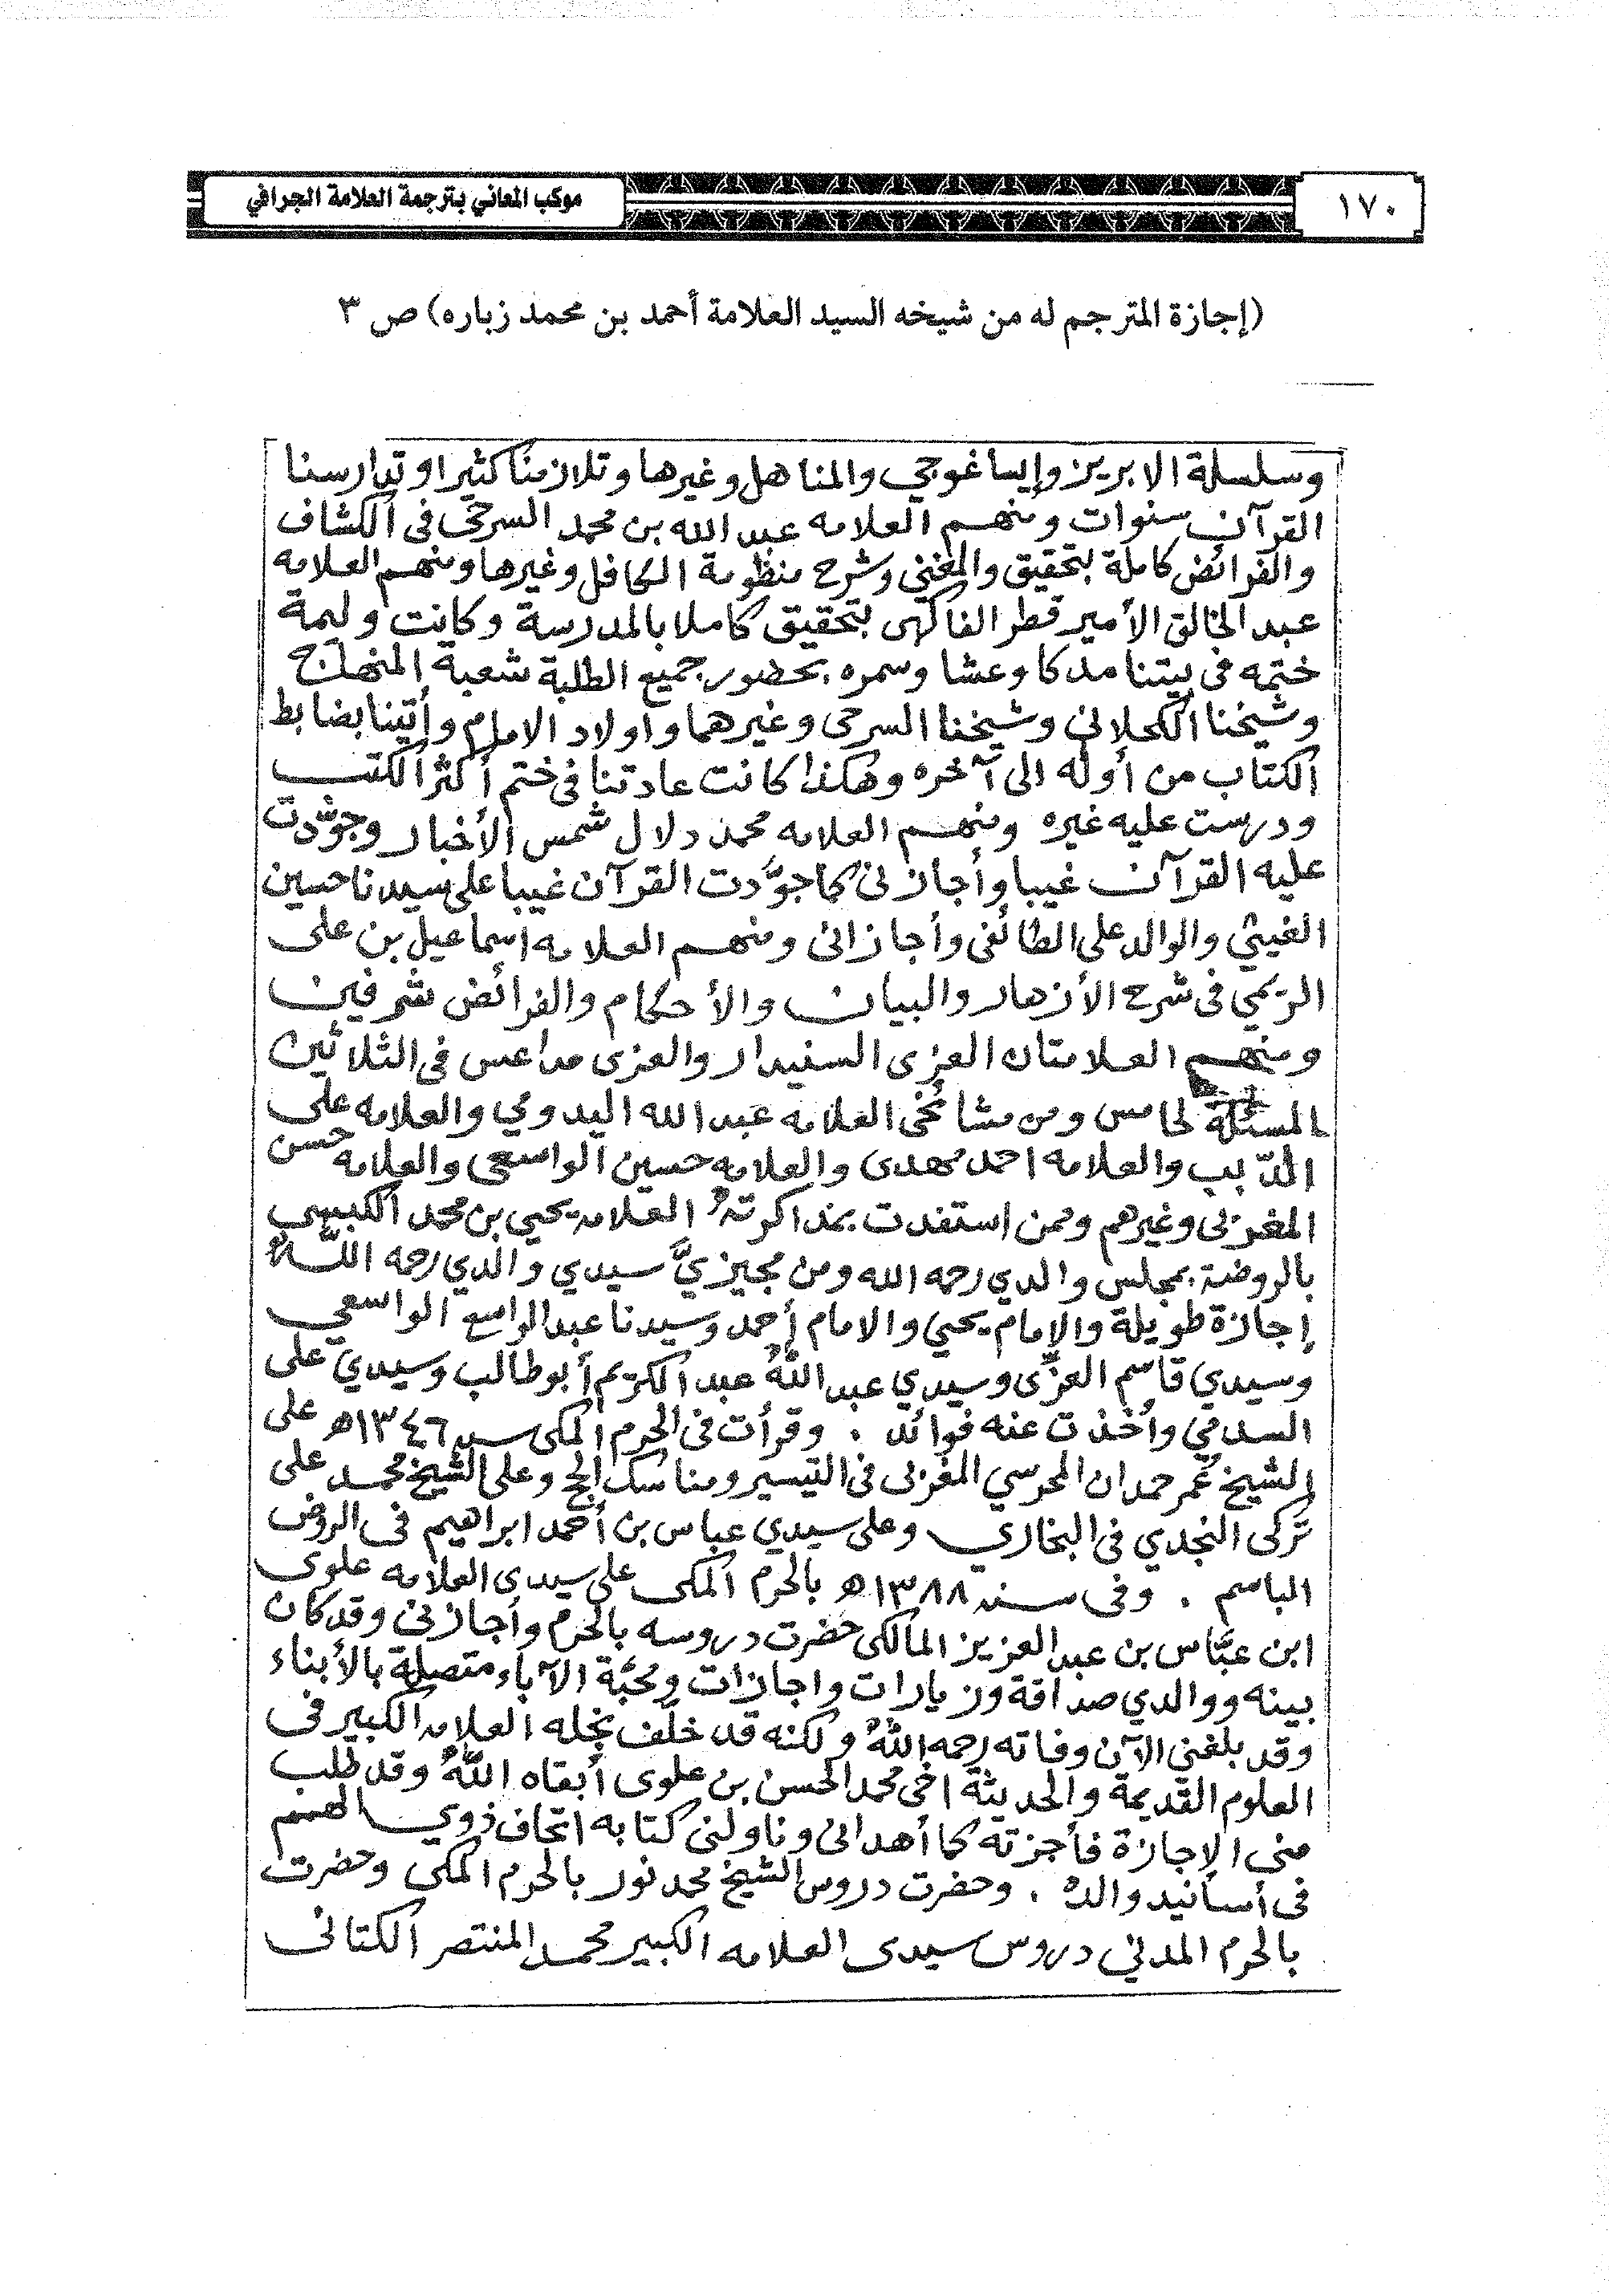 ١٧٠
موكب المعاني بترجمة العلامة الجرافي
(إجازة المترجم له من شيخه السيد العلامة أحمد بن محمد زباره) ص ٣
وسلسلة الابريز وإيساغوجي والمناهل وغيرها وتلازمنا كثيرا وتدارسنا
القرآن سنوات ومنهم العلامه عبد الله بن محمد السرحى فى الكشاف
والفرائض كاملة بتحقيق والمغني وشرح منظومة الكافل وغيرها ومنهم العلامه
عبد الخالق الأمير قطر الفاكهى بتحقيق كاملا بالمدرسة وكانت وليمة
ختمه فى بيتنا مدكا وعشا وسمره بحضور جميع الطلبة شعبة المنهاج
وشيخنا الكحلانى وشيخنا السرحى وغيرهما واولاد الامام وأتينا بضابط
الكتاب من أوله الى آخره وهكذا كانت عادتنا فى ختم أكثر الكتب
ودرست عليه غيره ومنهم العلامه محمد دلال شمس الأخبار وجوّدت
عليه القرآن غيبا وأجازنى كما جوّدت القرآن غيبا على سيدنا حسين
الغيثي والوالد على الطائفى وأجازانى ومنهم العلامه اسماعيل بن على
الريمي فى شرح الأزهار والبيان والأحكام والفرائض شرفين
ومنهم العلامتان العزى السنيدار والعزى مداعس فى الثلاثين
المسئلة لحابس ومن مشائخى العلامه عبد الله اليدومي والعلامه على
الدّبب والعلامه احمد مهدى والعلامه حسين الواسعى والعلامه حسن
المغربى وغيرهم وممن استفدت بمذاكرتهُ العلامه يحيى بن محمد الكبسي
بالروضة بمجلس والدي رحمه الله ومن مجيزيَّ سيدي والدي رحمه اللهُ
إجازة طويلة والإمام يحيى والامام أحمد وسيدنا عبد الواسع الواسعي
وسيدي قاسم العزّى وسيدي عبد اللهُ عبد الكريم أبو طالب وسيدي على
السدمي وأخذت عنه فوائد . وقرأت فى الحرم المكى سنه ١٣٤٦ه على
الشيخ عُمر حمدان المحرسي المغربى فى التيسير ومناسك الحج وعلى الشيخ محمد على
تركى النجدي فى البخاري وعلى سيدي عباس بن أحمد ابراهيم فى الروض
الباسم . وفى سنه ١٣٨٨ه بالحرم المكى على سيدى العلامه علوى
ابن عبّاس بن عبد العزيز المالكى حضرت دروسه بالحرم وأجازنى وقد كان
بينه ووالدي صداقة وزيارات واجازات ومحبّة الآباء متصلة بالأبناء
وقد بلغنى الآن وفاته رحمه اللهُ ولكنه قد خلّف نجله العلامه الكبير فى
العلوم القديمة والحديثة اخى محمد الحسن بن علوى أبقاه اللهُ وقد طلب
منى الإجازة فأجزته كما أهدانى وناولنى كتابه اتحاف ذوي الهمم
فى أسانيد والدهُ . وحضرت دروس الشيخ محمد نور بالحرم المكى وحضرت
بالحرم المدني دروس سيدى العلامه الكبير محمد المنتصر الكتانى